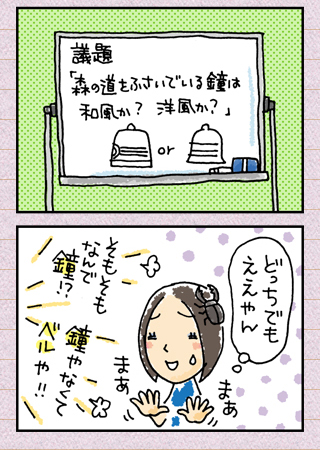 議題
「森の道をふさいでいる鐘は
和風か？ 洋風か？」
or
どっちでも
ええやん
そもそも
なんで
鐘!?
鐘やなくて
ベルや!!
まぁ
まぁ